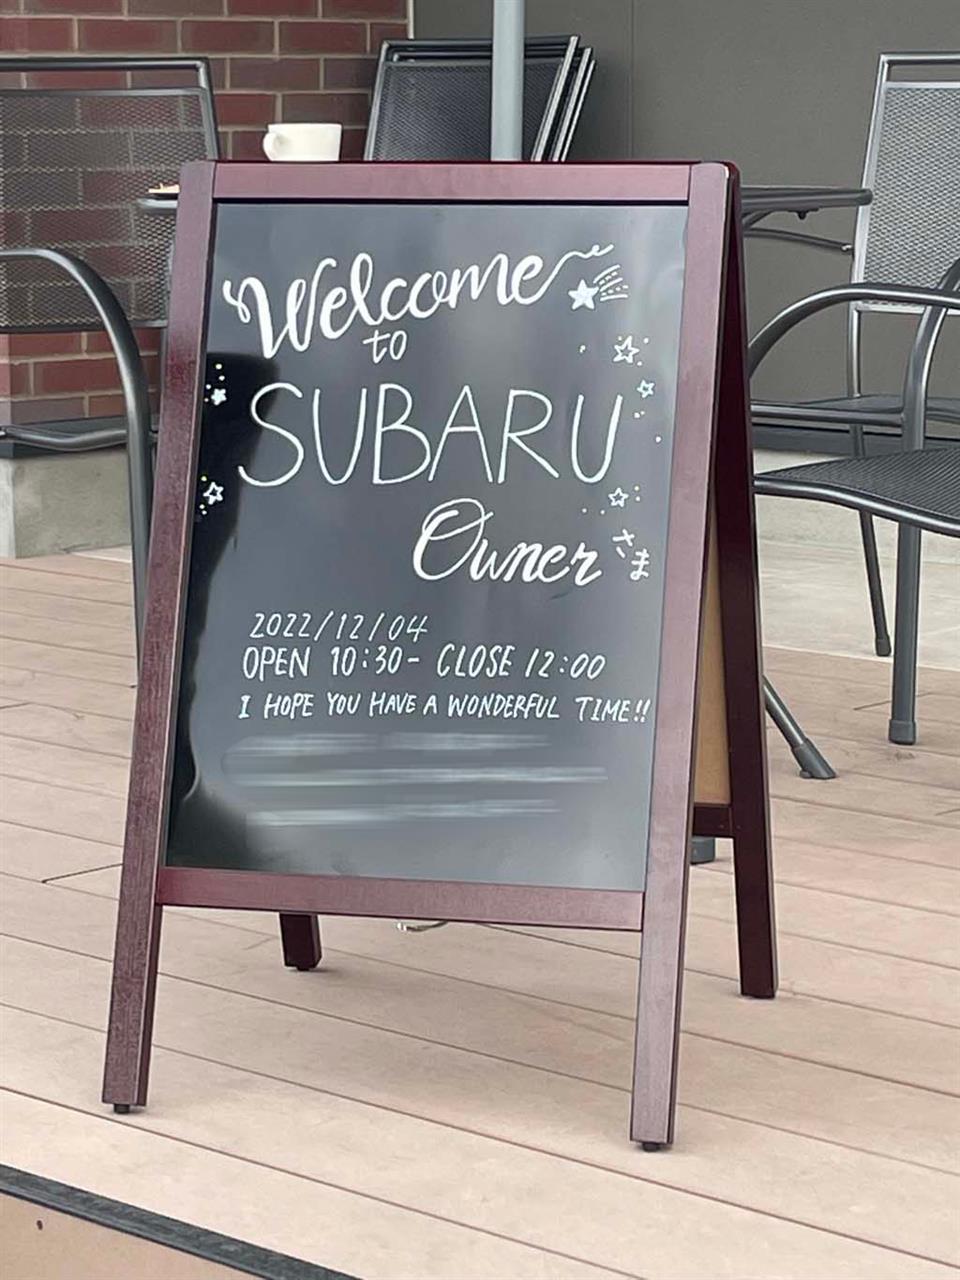 Welcome
to
SUBARU
Owner さま
2022/12/04
OPEN 10:30- CLOSE 12:00
I HOPE YOU HAVE A WONDERFUL TIME!!